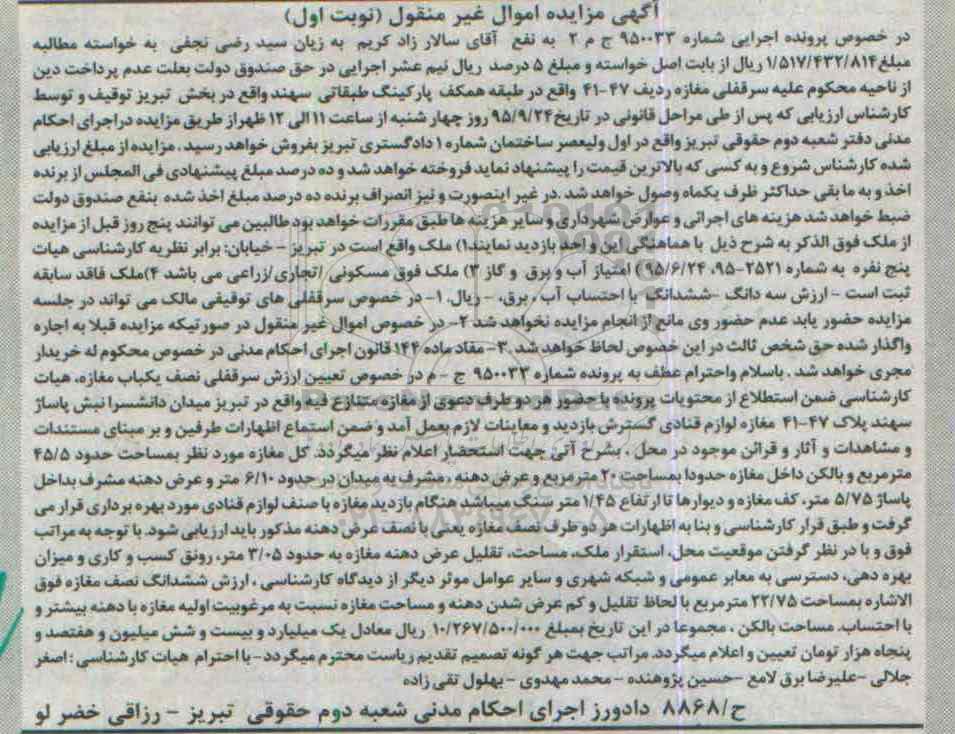 آگهی مزایده اموال غیر منقول (نوبت اول)
در خصوص پرونده اجرایی شماره ۹۵۰۰۳۳ ج م ۲ به نفع آقای سالار زاد کریم به زیان سید رضی نجفی به خواسته مطالبه
مبلغ ۱/۵۱۷/۴۳۲/۸۱۴ ریال از بابت اصل خواسته و مبلغ ۵ درصد ریال نیم عشر اجرایی در حق صندوق دولت بعلت عدم پرداخت دین
از ناحیه محکوم علیه سرقفلی مغازه ردیف ۴۷-۴۱ واقع در طبقه همکف پارکینگ طبقاتی سهند واقع در بخش تبریز توقیف و توسط
کارشناس ارزیابی که پس از طی مراحل قانونی در تاریخ ۹۵/۹/۲۴ روز چهارشنبه از ساعت ۱۱ الی ۱۲ ظهر از طریق مزایده در اجرای احکام
مدنی دفتر شعبه دوم حقوقی تبریز واقع در اول ولیعصر ساختمان شماره ۱ دادگستری تبریز بفروش خواهد رسید. مزایده از مبلغ ارزیابی
شده کارشناس شروع و به کسی که بالاترین قیمت را پیشنهاد نماید فروخته خواهد شد و ده درصد مبلغ پیشنهادی فی المجلس از برنده
اخذ و به ما بقی حداکثر ظرف یکماه وصول خواهد شد. در غیر اینصورت و نیز انصراف برنده ده درصد مبلغ اخذ شده بنفع صندوق دولت
ضبط خواهد شد هزینه های اجرائی و عوارض شهرداری و سایر هزینه ها طبق مقررات خواهد بود طالبین می توانند پنج روز قبل از مزایده
از ملک فوق الذکر به شرح ذیل با هماهنگی این واحد بازدید نمایند ۱) ملک واقع است در تبریز - خیابان: برابر نظریه کارشناسی هیات
پنج نفره به شماره ۲۵۲۱-۹۵، ۹۵/۶/۲۴) امتیاز آب و برق و گاز ۳) ملک فوق مسکونی /تجاری/زراعی می باشد ۴) ملک فاقد سابقه
ثبت است - ارزش سه دانگ -ششدانگ با احتساب آب، برق، - ریال. ۱- در خصوص سرقفلی های توقیفی مالک می تواند در جلسه
مزایده حضور یابد عدم حضور وی مانع از انجام مزایده نخواهد شد ۲- در خصوص اموال غیر منقول در صورتیکه مزایده قبلا به اجاره
واگذار شده حق شخص ثالث در این خصوص لحاظ خواهد شد. ۳- مفاد ماده ۱۴۴ قانون اجرای احکام مدنی در خصوص محکوم له خریدار
مجری خواهد شد. باسلام واحترام عطف به پرونده شماره ۹۵۰۰۳۳ ج - م در خصوص تعیین ارزش سرقفلی نصف یکباب مغازه، هیات
کارشناسی ضمن استطلاع از محتویات پرونده با حضور هر دو طرف دعوی از مغازه متنازع فیه واقع در تبریز میدان دانشسرا نبش پاساژ
سهند پلاک ۴۷-۴۱ مغازه لوازم قنادی گسترش بازدید و معاینات لازم بعمل آمد و ضمن استماع اظهارات طرفین و بر مبنای مستندات
و مشاهدات و آثار و قرائن موجود در محل، بشرح آتی جهت استحضار اعلام نظر میگردد. کل مغازه مورد نظر بمساحت حدود ۴۵/۵
مترمربع و بالکن داخل مغازه حدودا بمساحت ۲۰ مترمربع و عرض دهنه، مشرف به میدان در حدود ۶/۱۰ متر و عرض دهنه مشرف بداخل
پاساژ ۵/۷۵ متر، کف مغازه و دیوارها تا ارتفاع ۱/۴۵ متر سنگ میباشد هنگام بازدید مغازه با صنف لوازم قنادی مورد بهره برداری قرار می
گرفت و طبق قرار کارشناسی و بنا به اظهارات هر دو طرف نصف مغازه یعنی با نصف عرض دهنه مذکور باید ارزیابی شود. با توجه به مراتب
فوق و با در نظر گرفتن موقعیت محل، استقرار ملک، مساحت، تقلیل عرض دهنه مغازه به حدود ۳/۰۵ متر، رونق کسب و کاری و میزان
بهره دهی، دسترسی به معابر عمومی و شبکه شهری و سایر عوامل موثر دیگر از دیدگاه کارشناسی، ارزش ششدانگ نصف مغازه فوق
الاشاره بمساحت ۲۲/۷۵ مترمربع با لحاظ تقلیل و کم عرض شدن دهنه و مساحت مغازه نسبت به مرغوبیت اولیه مغازه با دهنه بیشتر و
با احتساب مساحت بالکن، مجموعا در این تاریخ بمبلغ ۱۰/۲۶۷/۵۰۰/۰۰۰ ریال معادل یک میلیارد و بیست و شش میلیون و هفتصد و
پنجاه هزار تومان تعیین و اعلام میگردد. مراتب جهت هر گونه تصمیم تقدیم ریاست محترم میگردد- با احترام هیات کارشناسی: اصغر
جلالی -علیرضا برق لامع -حسین پژوهنده - محمد مهدوی - بهلول تقی زاده
ح/۸۸۶۸ دادورز اجرای احکام مدنی شعبه دوم حقوقی تبریز - رزاقی خضر لو